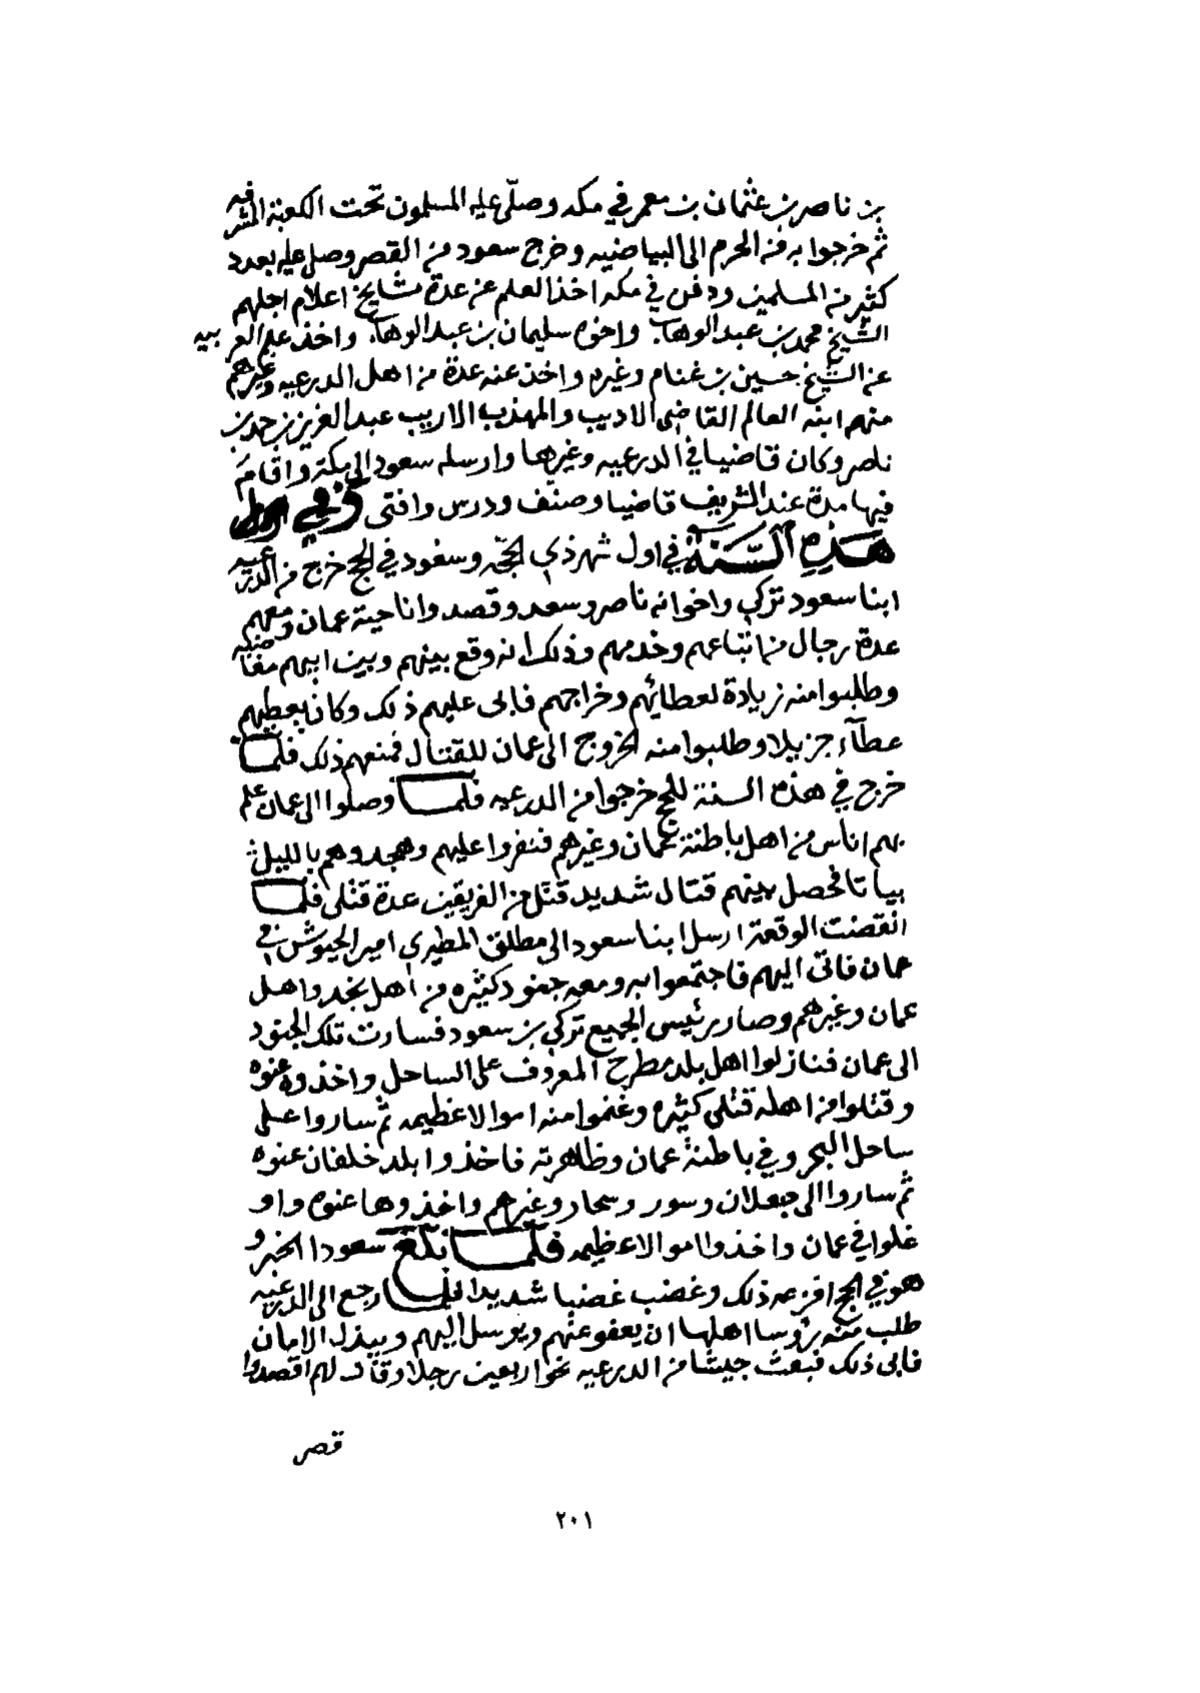 بن ناصر بن عثمان بن معمر في مكه وصلّى عليه المسلمون تحت الكعبة المشرفه
ثم خرجوا به من الحرم الى البياضيه وخرج سعود من القصر وصلى عليه بعدد
كثير من المسلمين ودفن في مكه اخذ العلم عن عدة مشايخ اعلام اجلهم
الشيخ محمد بن عبد الوهاب واخوه سليمان بن عبد الوهاب واخذ علم العربيه
عن الشيخ حسين بن غنام وغيره واخذ عنه عدة من اهل الدرعيه وغيرهم
منهم ابنه العالم القاضي الاديب والمهذب الاريب عبد العزيز بن حمد بن
ناصر وكان قاضيا في الدرعيه وغيرها وارسله سعود الى مكة واقام
فيها مدة عند الشريف قاضيا وصنّف ودرس وافتى وفي
هذه السَّنة في اول شهر ذي الحجّه وسعود في الحج خرج من الدرعيه
ابنا سعود تركي واخوانه ناصر وسعد وقصدوا ناحية عمان ومعهم
عدة رجال من اتباعهم وخدمهم وذلك انه وقع بينهم وبين ابيهم مغاضبه
وطلبوا منه زيادة لعطائهم وخراجهم فابى عليهم ذلك وكان يعطيهم
عطآء جزيلا وطلبوا منه الخروج الى عمان للقتال فمنعهم ذلك فلمّا
خرج في هذه السنة للحج خرجوا من الدرعيه فلما وصلوا الى عمان علم
بهم اناس من اهل باطنة عمان وغيرهم فنفروا عليهم وهجدوهم بالليل
بياتا فحصل بينهم قتال شديد قتل من الفريقين عدة قتلى فلما
انقضت الوقعة ارسل ابنا سعود الى مطلق المطيري امير الجيوش في
عمان فاتى اليهم فاجتمعوا به ومعه جنود كثيره من اهل نجد واهل
عمان وغيرهم وصار رئيس الجميع تركي بن سعود فسارت تلك الجنود
الى عمان فنازلوا اهل بلد مطرح المعروف على الساحل واخذوه عنوه
وقتلوا من اهله قتلى كثيره وغنموا منه اموالا عظيمه ثم ساروا على
ساحل البحر وفي باطنة عمان وظاهرته فاخذوا بلد خلفان عنوه
ثم ساروا الى جعلان وسور وسحار وغيرهم واخذوها عنوه واو
غلوا في عمان واخذوا اموالا عظيمه فلمّا بلغ سعودا الخبر و
هو في الحج افزعه ذلك وغضب غضبا شديدا فلما رجع الى الدرعيه
طلب منه رؤسا اهلها ان يعفو عنهم ويرسل اليهم ويبذل الامان
فابى ذلك فبعث جيشا من الدرعيه نحو اربعين رجلا وقال لهم اقصدوا
قصر
٢٠١